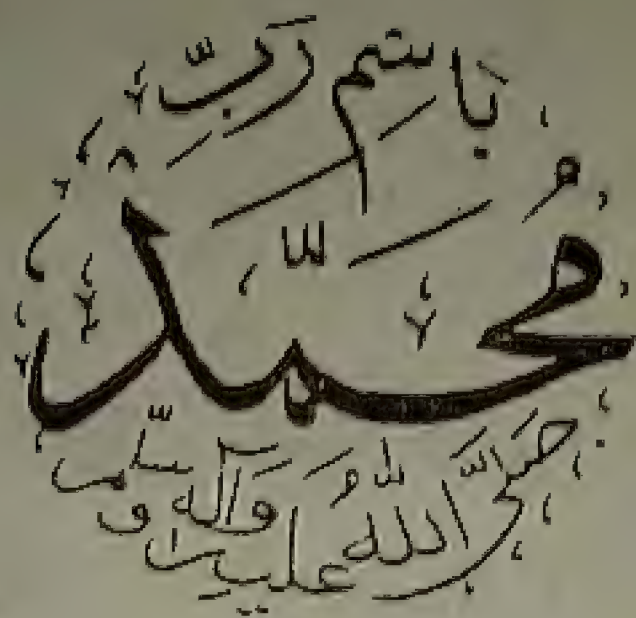 باسم رَبِّ
مُحَمَّد
صَلَّى اللَّهُ عليه وَآله وسلّم